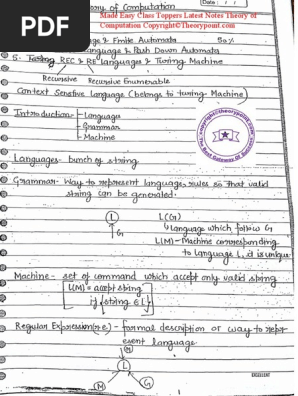 PDF
ory of Computation
Date : / /
Made Easy Class Toppers Latest Notes Theory of
Computation Copyright©theorypoint.com
age & Finite Automata 50%
Language & Push Down Automata
5. Turing, REC & RE Languages & Turing Machine
Recursive Recursive Enumerable
Context Sensitive Language (belongs to turing Machine)
Introduction - Language
- Grammar
- Machine
Languages - bunch of string
Grammar - way to represent language, rules so that valid
string can be generated.
L L(G)
G Language which follow G
L(M) - Machine corresponding
to language L, it is unique
Machine - set of command which accept only valid string
L(M) = accept string
if string ∈ L
Regular Expression (r.e) - formal description or way to repr
esent language
M
L
M G